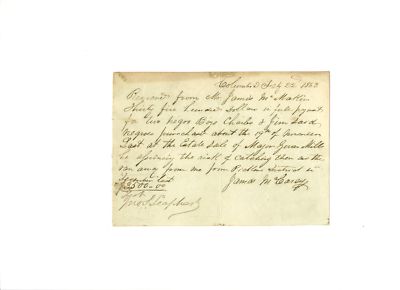 Columbia Feby 22 1863
Received from Mr. James McMakin
Thirty five Hundred Dollars in full payment
for two negro Boys Charles & Jim said
Negroes purchased about the 19th of November
Last at the Estate Sale of Major Mills
he assuming the risk of catching them as the
ran away from me from District in
November last James McCarey
$3500-00